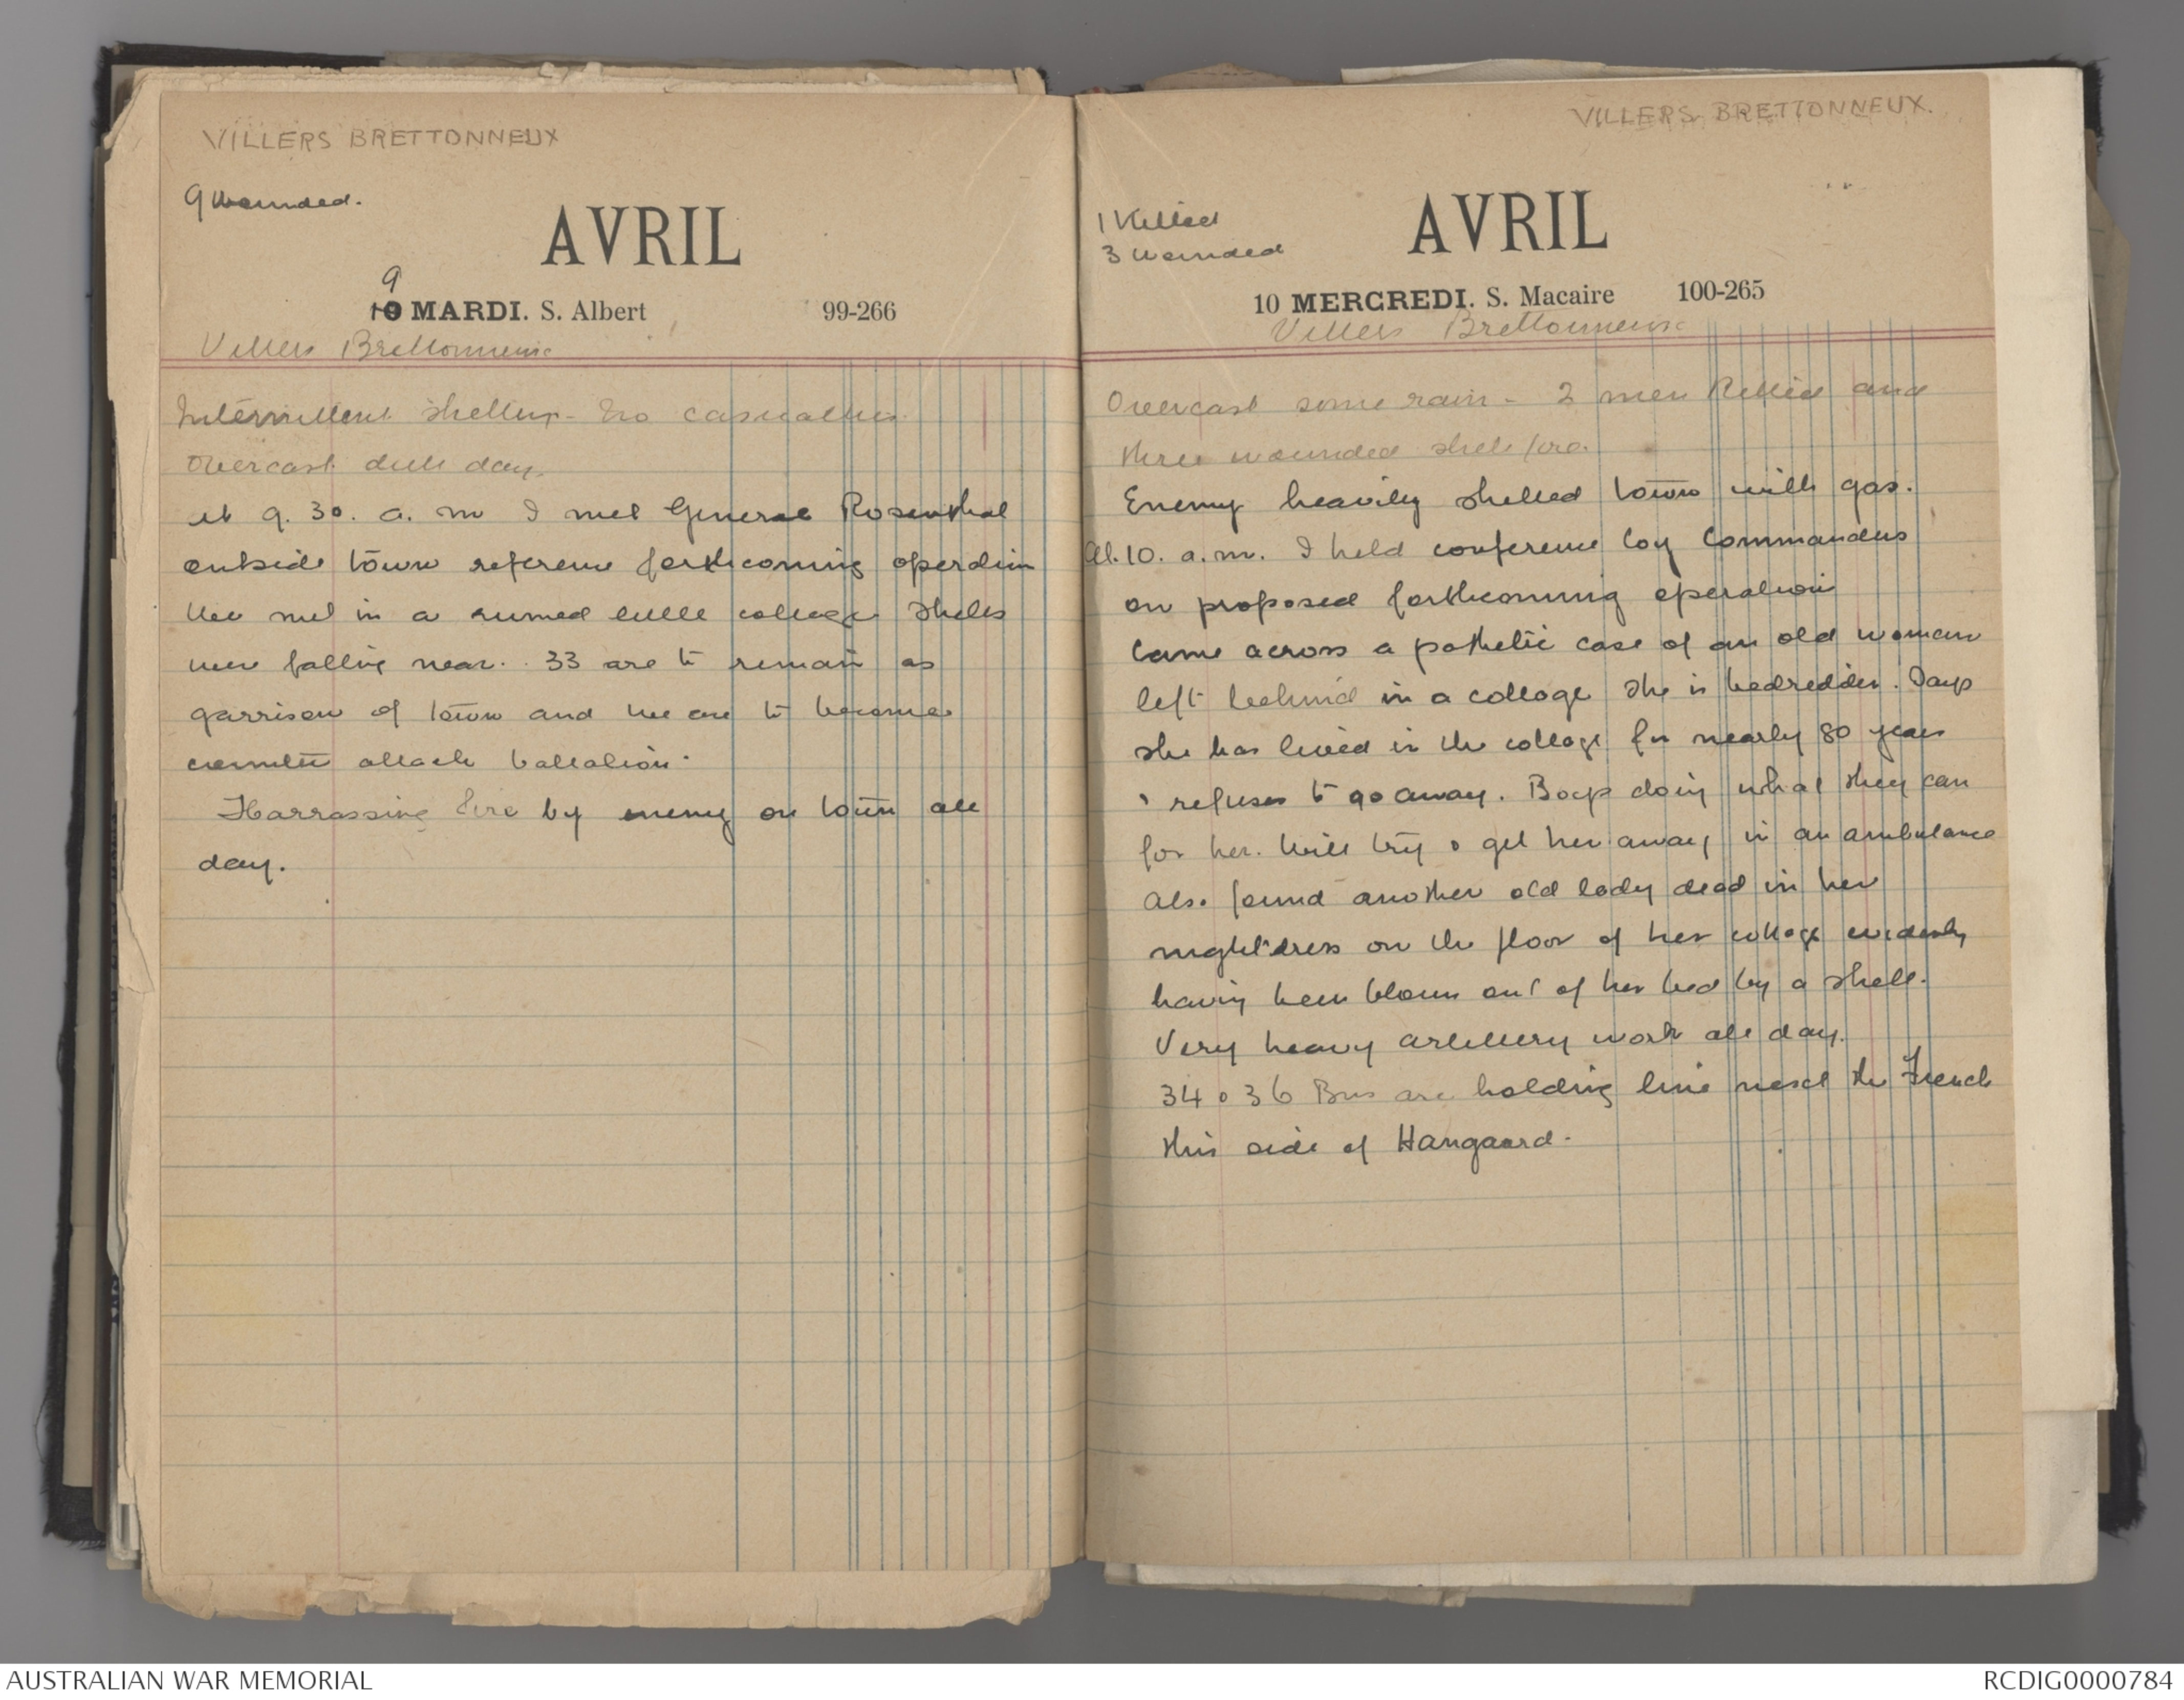 VILLERS BRETTONNEUX
9 wounded.
AVRIL
9
10 MARDI. S. Albert 99-266
Villers Brettonneux
Intermittent shelling - No casualties
Overcast dull day.
At 9.30. a. m I met General Rosenthal
outside town reference forthcoming operation
We met in a ruined little cottage shells
were falling near. 33 are to remain as
garrison of town and we are to become
counter attack battalion.
Harrassing fire by enemy on town all
day.
VILLERS BRETTONNEUX.
1 Killed
3 wounded
AVRIL
10 MERCREDI. S. Macaire 100-265
Villers Brettonneux
Overcast some rain - 2 men killed and
three wounded shell fire.
Enemy heavily shelled town with gas.
At. 10. a.m. I held conference Coy Commanders
on proposed forthcoming operation
Came across a pathetic case of an old woman
left behind in a cottage she is bedridden. Says
she has lived in the cottage for nearly 80 years
& refuses to go away. Boys doing what they can
for her. Will try & get her away in an ambulance
Also found another old lady dead in her
nightdress on the floor of her cottage evidently
having been blown out of her bed by a shell.
Very heavy artillery work all day.
34 & 36 Bns are holding line next the French
this side of Hangaard.
AUSTRALIAN WAR MEMORIAL
RCDIG0000784